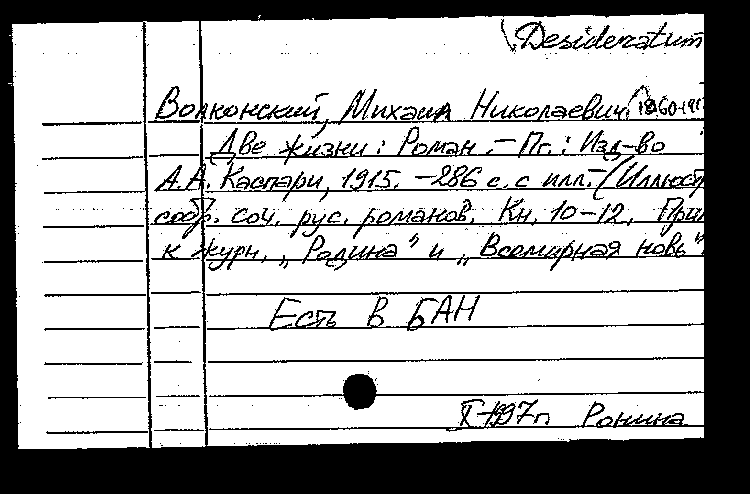 Desideratum
Волконский, Михаил Николаевич (1860-191
Две жизни: Роман. – Пг.: Изд-во
А.А. Каспари, 1915. – 286 с. с илл. – (Иллюстр
собр. соч. рус. романов. Кн. 10-12. Прил
к журн. „Родина" и „Всемирная новь".
Есть в БАН
X-1997г. Ронина